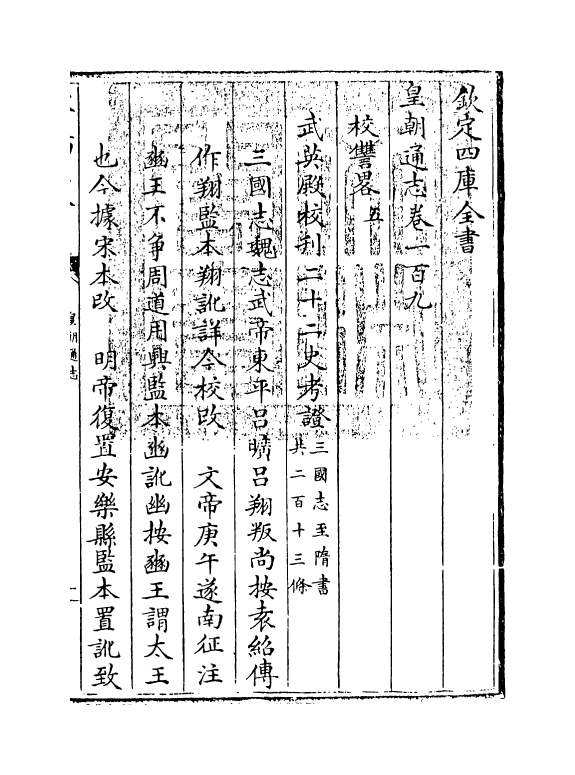 欽定四庫全書
皇朝通志卷一百九
校讐畧五
武英殿校刋二十二史考證三國志至隋書
共二百十三條
三國志魏志武帝東平吕曠吕翔叛尚按袁紹傳
作翔監本翔訛詳今校改　文帝庚午遂南征注
豳王不争周道用興監本豳訛幽按豳王謂太王
也今據宋本改　明帝復置安樂縣監本置訛致
皇朝通志